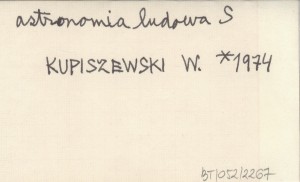 astronomia ludowa S
KUPISZEWSKI W. *1974
BT/052/2267